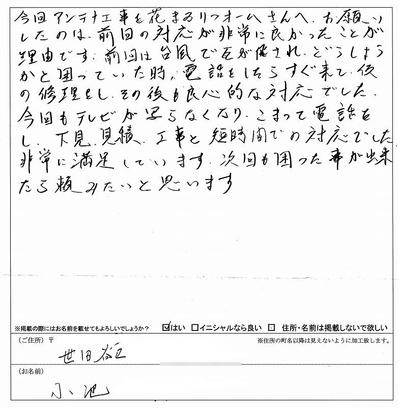 今回アンテナ工事を花まるリフォームさんへ、お願い
したのは、前回の対応が非常に良かったことが
理由です。前回は台風で瓦が飛され、どうしよう
かと困っていた時、電話をしたらすぐ来て、仮
の修理をし、その後も良心的な対応でした。
今回もテレビが映らなくなり、こまって電話を
し、下見、見積、工事と短時間での対応でした
非常に満足しています。次回も困った事が出来
たら頼みたいと思います
※掲載の際にはお名前を載せてもよろしいでしょうか? ☑はい □イニシャルなら良い □ 住所・名前は掲載しないで欲しい
(ご住所) 〒 ※住所の町名以降は見えないように加工致します。
世田谷区
(お名前)
小池